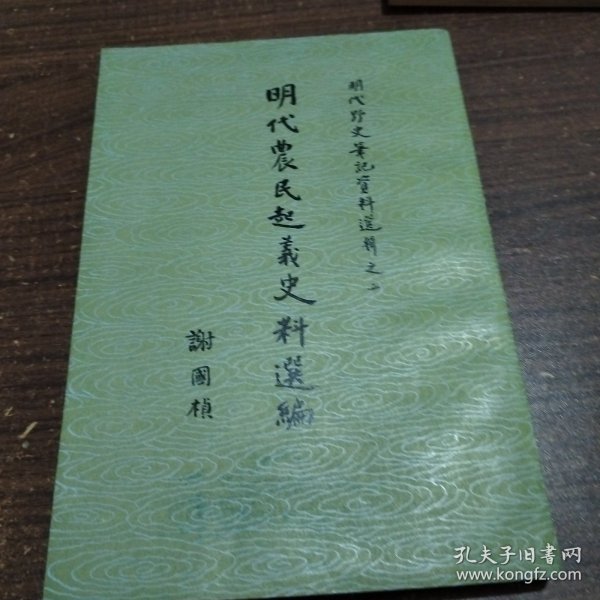 明代野史筆記資料選輯之二
明代農民起義史料選編
謝國楨
孔夫子旧书网
www.kongfz.com